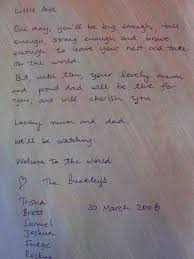 Little
One day, you'll be big enough, tall
enough, strong enough and brave
enough to leave your nest and take
on the world.
But, until then, your lovely mum
and proud dad will be there for
you, and will cherish you
Lucky mum and dad.
We'll be watching.
Welcome to the world
The Buckleys
Trisha
Brett
Samuel
Joshua
Fudge
30 March 2008